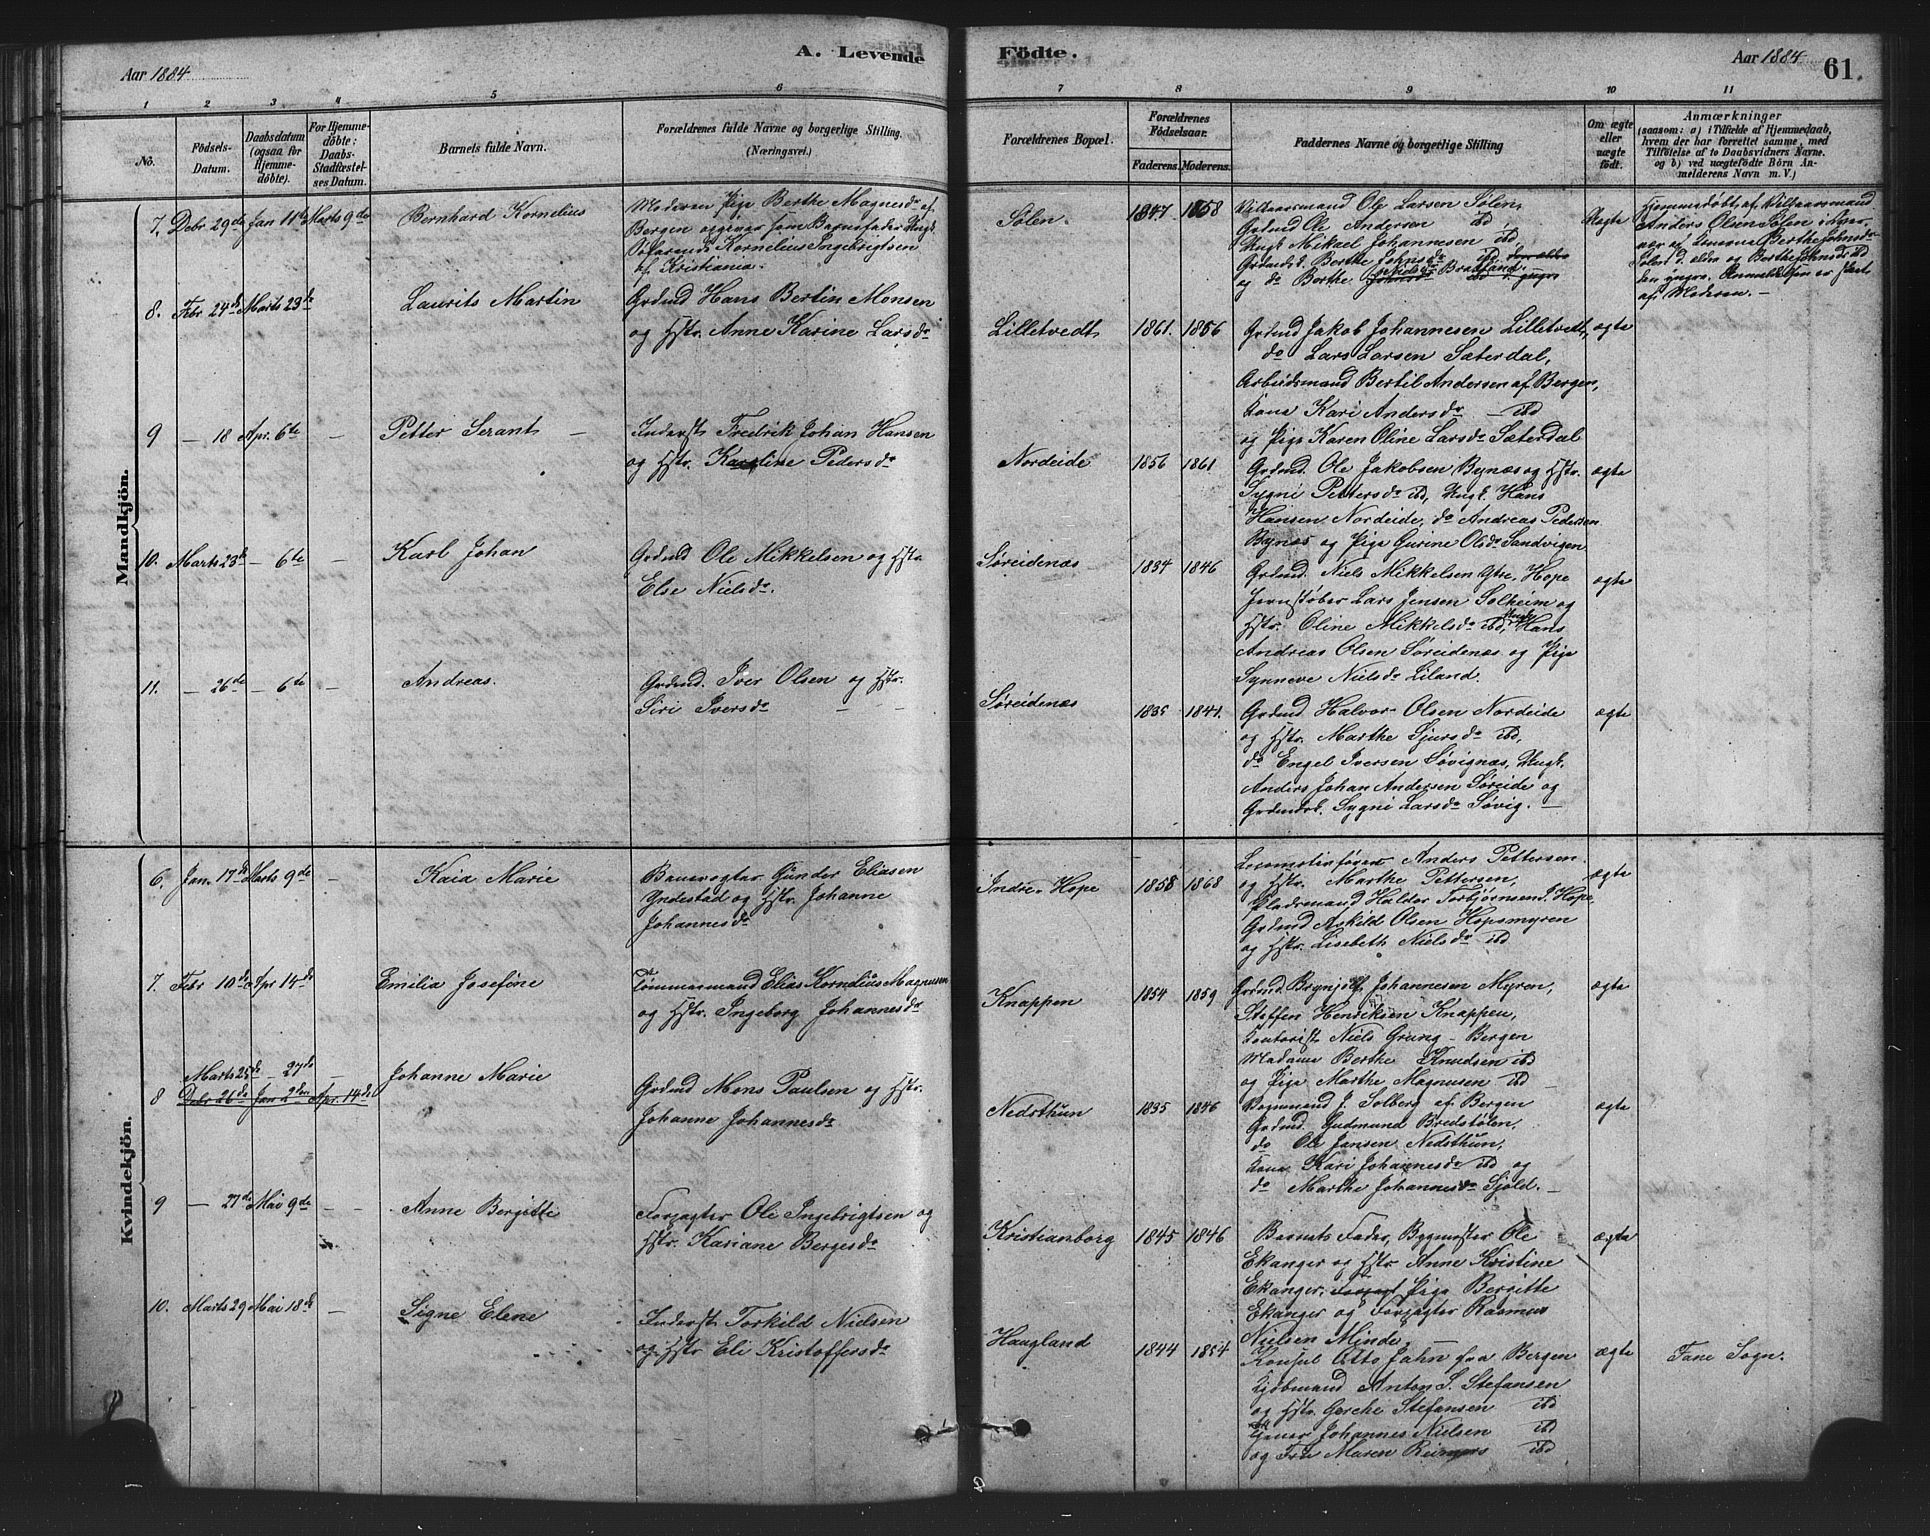 Aar 1884
A. Levende
Födte.
Aar 1884
61.
1 2 3 4 5 6 7 8 9 10 11
No.
Födsels-
Datum.
Daabsdatum
(ogsaa for
Hjemme-
döbte).
For Hjemme-
döbte:
Daabs-
Stadfæstel-
ses Datum.
Barnets fulde Navn.
Forældrenes fulde Navne og borgerlige Stilling.
(Næringsvei.)
Forældrenes Bopæl.
Forældrenes
Födselsaar.
Faderens. Moderens.
Faddernes Navne og borgerlige Stilling
Om ægte
eller
uægte
födt.
Anmærkninger
(saasom: a) i Tilfælde af Hjemmedaab,
hvem der har forrettet samme, med
Tilföielse af to Daabsvidners Navne,
og b) ved uægtefödte Börn An-
melderens Navn m. V.)
Mandkjön.
7. Debr 29de Jan 11te Marts 9de
Bernhard Kornelius
Moderen Pige Berthe Magnesdr af
Bergen opgiver som Barnefader Ungk.
Søfarende Kornelius Ingebrigtsen
af Kristiania.
Sølen.
1847 1858
Vilkaarsmand Ole Larsen Sølen,
Grdmd Ole Andersen ibd
Ungk Mikael Johannesen ibd
Grdmds. Berthe Johnsdr ibd den ældre
og do Berthe Johnsdr ibd d. yngre
Uægte
Hjemmedøbt af Vilkaarsmand
Anders Olsen Sølen i Nær-
vær af Konerne Berthe Johnsdr
Sølen d. eldre og Berthe Johnsdr ibd
den yngre. Anmeldelsen er skeet
af Moderen. —
8. Febr 24de Marts 23de
Laurits Martin
Grdmd Hans Bertin Monsen
og Hstr. Anne Karine Larsdr
Lilletvedt
1861. 1856
Grdmd Jakob Johannesen Lilletvedt,
do Lars Larsen Sæterdal,
Arbeidsmand Bertil Andersen af Bergen,
Kone Kari Andersdr — ibd
og Pige Karen Oline Larsdr Sæterdal
ægte
9 — 18 Apr. 6te —
Petter Serant —
Inderst Fredrik Johan Hansen
og Hstr. Karoline Pedersdr
Nordeide
1856 1861
Grdmd. Ole Jakobsen Bynæs og Hstr.
Sygni Pettersdr ibd, Ungk. Hans
Hansen Nordeide, do Andreas Pedersen
Bynæs og Pige Gurine Olsdr Sandvigen
ægte
10. Marts 23de — 6te —
Karl Johan
Grdmd Ole Mikkelsen og Hstr.
Else Nielsdr.
Søreidenæs
1834 1846
Grdmd. Niels Mikkelsen Ytre Hope
Jernstøber Lars Jensen Solheim og
Hstr. Oline Mikkelsdr ibd, Hans
Andreas Olsen Søreidenæs og Pige
Synneve Nielsdr Liland.
ægte
11. — 26de — 6te —
Andreas.
Grdmd. Iver Olsen og Hstr.
Siri Iversdr — —
Søreidenæs
1835 1841.
Grdmd Halvor Olsen Nordeide
og Hstr. Marthe Sjursdr ibd,
do Engel Iversen Søvignæs, Ungk.
Anders Johan Andersen Søreide og
Grdmds. Sygni Larsdr Søvig. —
ægte
Kvindekjön.
6. Jan. 17de Marts 9de —
Kaia Marie
Banevogter Gunder Eliasen
Yndestad og Hstr. Johanne
Johannesdr
Indre Hope
1858 1868
Locomotivfører Anders Pettersen
og Hstr. Marthe Pettersen,
Pladsmand Haldor Torbjørnsen I. Hope,
Grdmd Askild Olsen Hopsmyren
og Hstr. Lisebeth Nielsdr ibd
ægte
7. Febr 10de Apr 14de —
Emilia Josefine
Tømmermand Elias Kornelius Magnusen
og Hstr. Ingeborg Johannesdr
Knappen
1854 1859
Grdmd Brynjolf Johannesen Myren,
Steffen Henriksen Knappen,
Kontorist Niels Grung - Bergen
Madame Berthe Knudsen ibd
og Pige Marthe Magnusen ibd
ægte
Marts 25de — 27de —
8 Debr 26de Jan 2den Apr. 14de
Johanne Marie
Grdmd Mons Paulsen og Hstr.
Johanne Johannesdr
Nedsthun
1835 1846
Bogmmand J. Solberg af Bergen
Grdmd. Gudmund Bredstølen,
do Ole Jansen Nedsthun,
Kone Kari Johannesdr ibd og
do Marthe Johannesdr Sjold. —
ægte
9 — 27de Mai 9de — —
Anne Bergitte
Forpagter Ole Ingebrigtsen og
Hstr. Kariane Bergesdr
Kristianborg
1845 1846
Barnets Fader, Bygmester Ole
Ekanger og Hstr Anne Kristine
Ekanger, Forpagt Pige Bergitte
Ekanger og Forpagter Rasmus
Nielsen Minde
ægte
10. Marts 29 Mai 18de —
Signe Elene
Inderst Torkild Nielsen
og Hstr Eli Kristoffersdr
Haagland
1844 1854
Konsul Otto Jahn fra Bergen
Kjøbmand Anton S. Stefansen
og Hstr. Gerche Stefansen ibd
Johannes Nielsen ibd
og Fru Maren Reimers ibd
ægte
Fane Sogn.